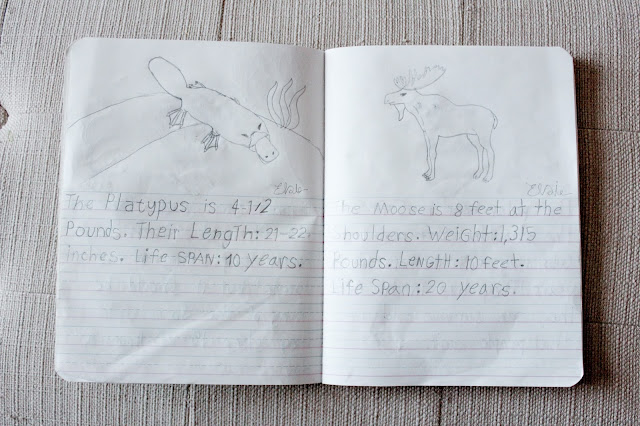 The Platypus is 4-1/2
Pounds. Their Length: 21-22
inches. Life SPAN: 10 years.
The Moose is 8 feet at the
shoulders. Weight: 1,315
Pounds. LENGTH: 10 feet.
Life Span: 20 years.